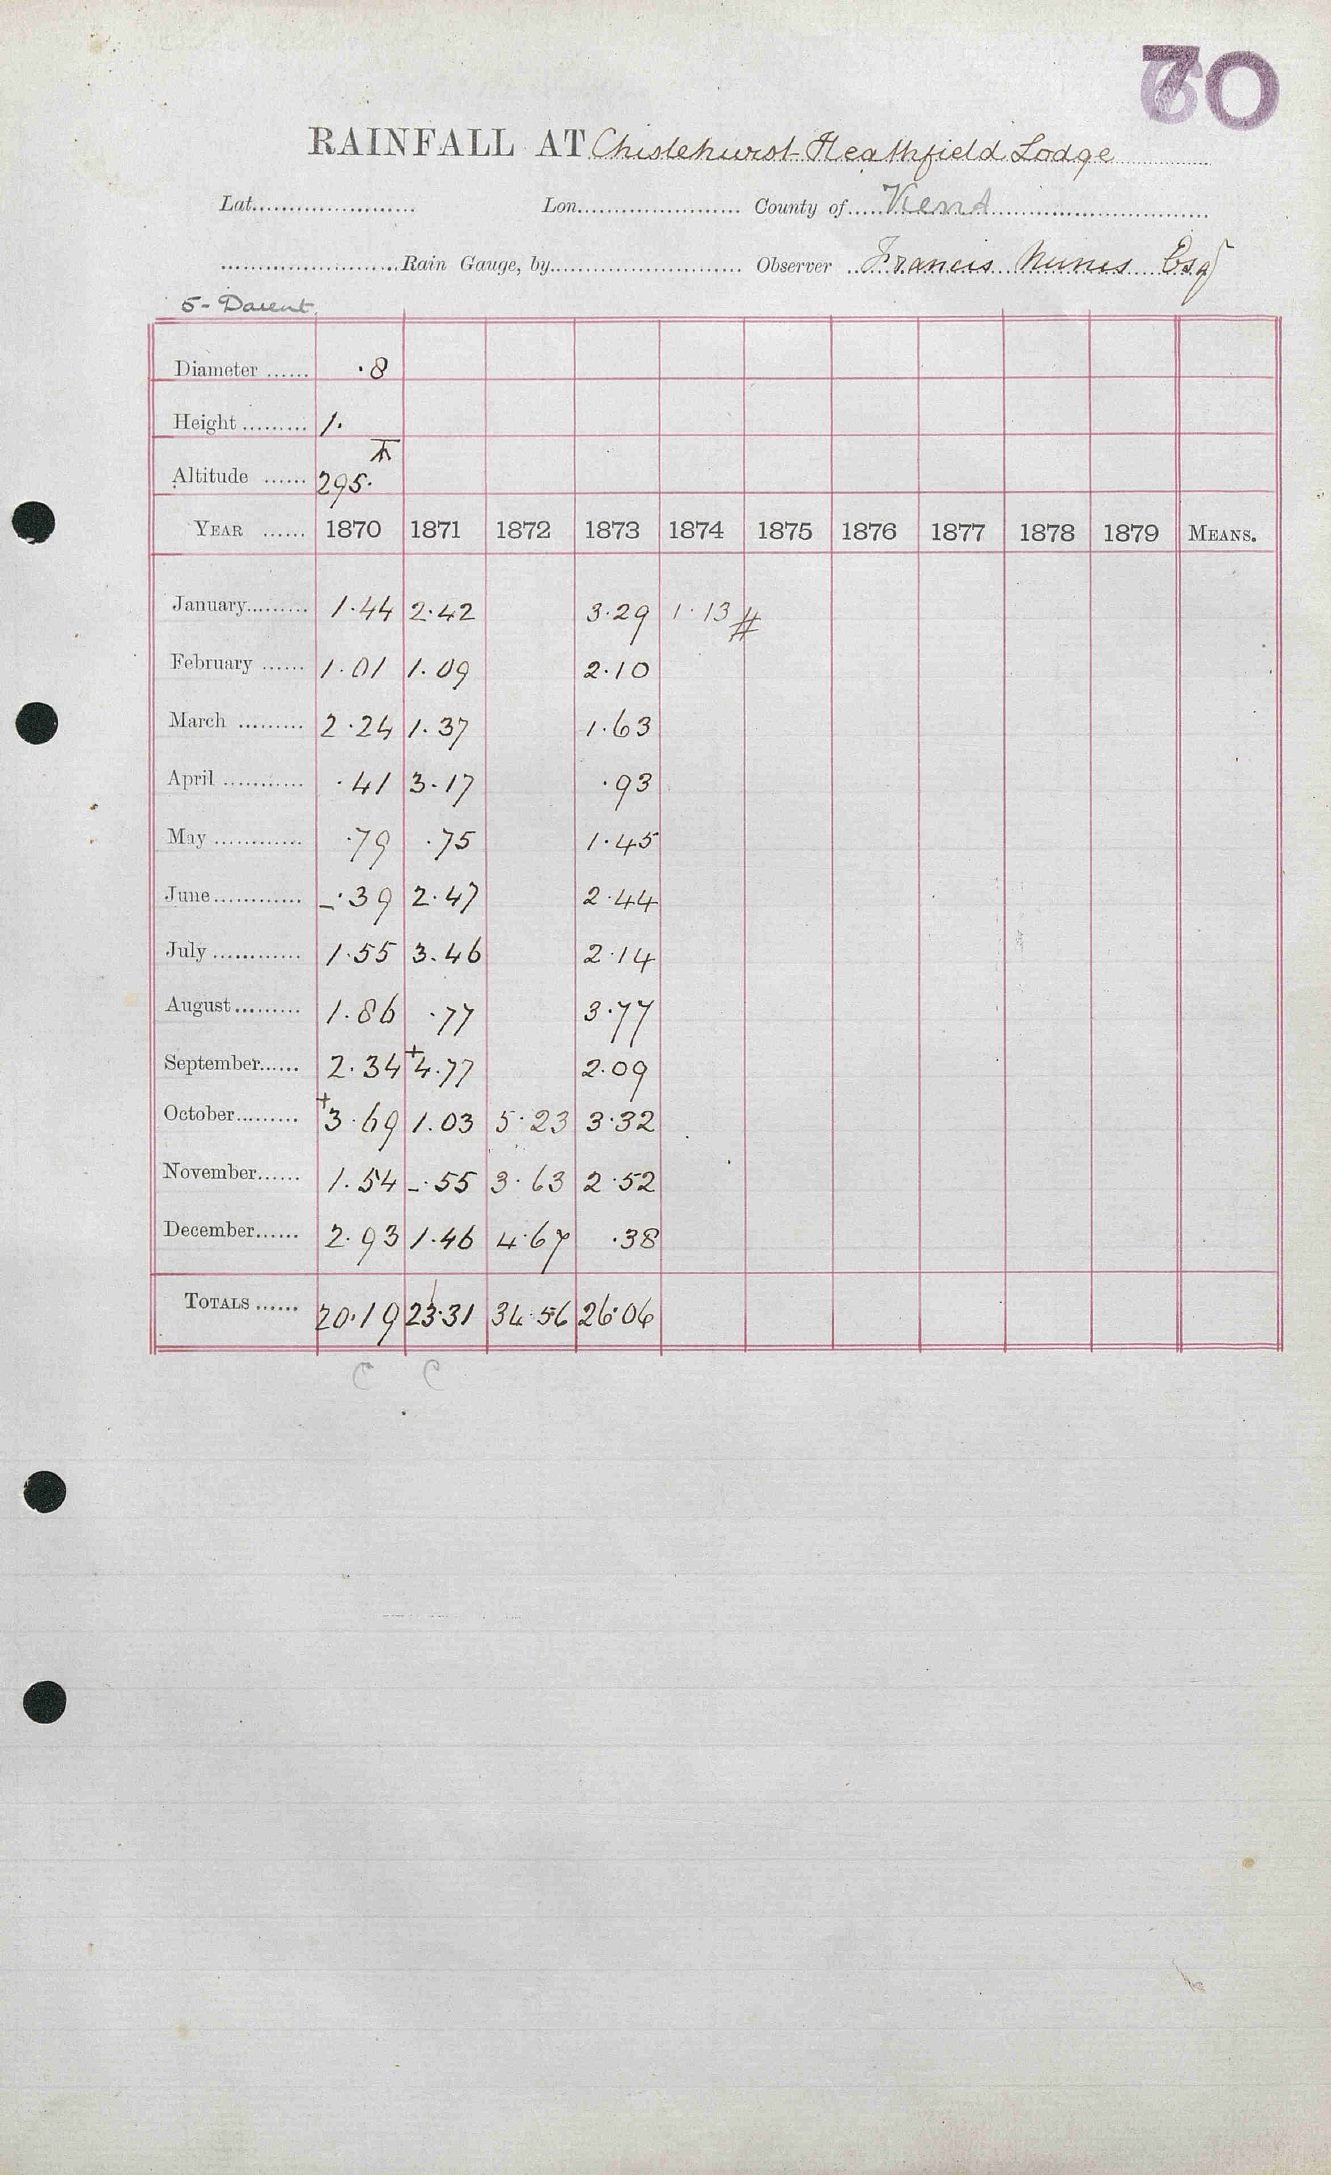 70
RAINFALL AT Chislehurst-Heathfield Lodge
Lat. Lon. County of Kent
Rain Gauge, by Observer Francis Nunes Esq
5- Darent
Diameter ...... .8
Height ......... 1.
Altitude ...... 295. T
YEAR ...... 1870 1871 1872 1873 1874 1875 1876 1877 1878 1879 MEANS.
January......... 1.44 2.42 3.29 1.13 #
February ...... 1.01 1.09 2.10
March ......... 2.24 1.37 1.63
April ........... .41 3.17 .93
May ............ .79 .75 1.45
June............ -.39 2.47 2.44
July ............ 1.55 3.46 2.14
August......... 1.86 .77 3.77
September...... 2.34 +4.77 2.09
October......... +3.69 1.03 5.23 3.32
November...... 1.54 -.55 3.63 2.52
December...... 2.93 1.46 4.67 .38
TOTALS ...... 20.19 23.31 34.56 26.06
C C